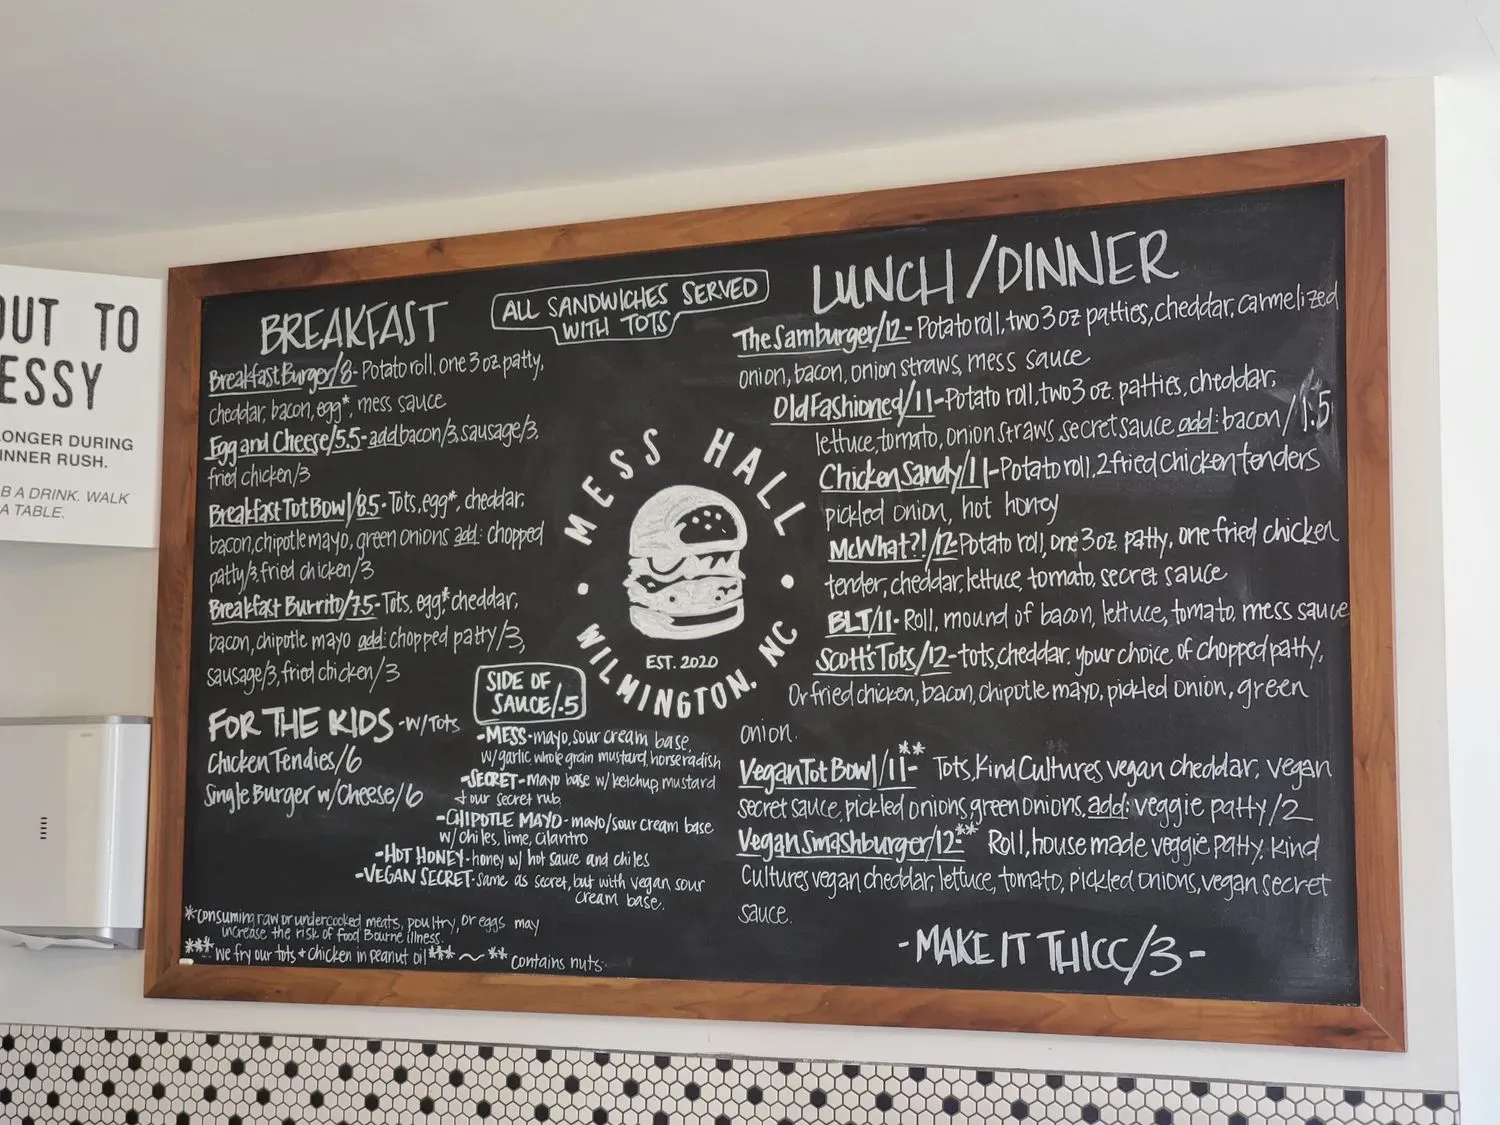 OUT TO
ESSY
ONGER DURING
INNER RUSH.
B A DRINK. WALK
A TABLE.
BREAKFAST
Breakfast Burger/8- Potato roll, one 3 oz patty,
cheddar, bacon, egg*, mess sauce
Egg and Cheese/5.5- add bacon/3. sausage/3.
fried chicken/3
Breakfast Tot Bowl/8.5- Tots, egg*, cheddar,
bacon, chipotle mayo, green onions add: chopped
patty/3, fried chicken/3
Breakfast Burrito/7.5- Tots, egg*, cheddar,
bacon, chipotle mayo add: chopped patty/3,
sausage/3, fried chicken/3
FOR THE KIDS -W/TOTS
Chicken Tendies/6
Single Burger w/Cheese/6
ALL SANDWICHES SERVED
WITH TOTS
MESS HALL
EST. 2020
WILMINGTON, NC
SIDE OF
SAUCE/.5
-MESS-mayo, sour cream base,
w/garlic whole grain mustard, horseradish
-SECRET- mayo base w/ ketchup, mustard
+ our secret rub.
-CHIPOTLE MAYO- mayo/sour cream base
w/ chiles, lime, cilantro
-HOT HONEY- honey w/ hot sauce and chiles
-VEGAN SECRET- same as secret, but with vegan sour
cream base.
*consuming raw or undercooked meats, poultry, or eggs may
increase the risk of food Bourne illness.
*** we fry our tots + chicken in peanut oil*** ~ ** contains nuts.
LUNCH/DINNER
The Samburger/12- Potato roll, two 3 oz patties, cheddar, carmelized
onion, bacon, onion straws, mess sauce
Old Fashioned/11- Potato roll, two 3 oz. patties, cheddar,
lettuce, tomato, onion straws secret sauce add: bacon/1.5
Chicken Sandy/11- Potato roll, 2 fried chicken tenders
pickled onion, hot honey
McWhat?!/12- Potato roll, one 3 oz patty, one fried chicken
tender, cheddar, lettuce, tomato, secret sauce
BLT/11- Roll, mound of bacon, lettuce, tomato, mess sauce
Scott's Tots/12- tots, cheddar, your choice of chopped patty,
Or fried chicken, bacon, chipotle mayo, pickled onion, green
onion.
Vegan Tot Bowl/11-** Tots, Kind Cultures vegan cheddar, vegan
secret sauce, pickled onions, green onions. add: veggie patty/2
Vegan Smashburger/12-** Roll, house made veggie patty, Kind
Cultures vegan cheddar, lettuce, tomato, pickled onions, vegan secret
sauce.
-MAKE IT THICC/3-